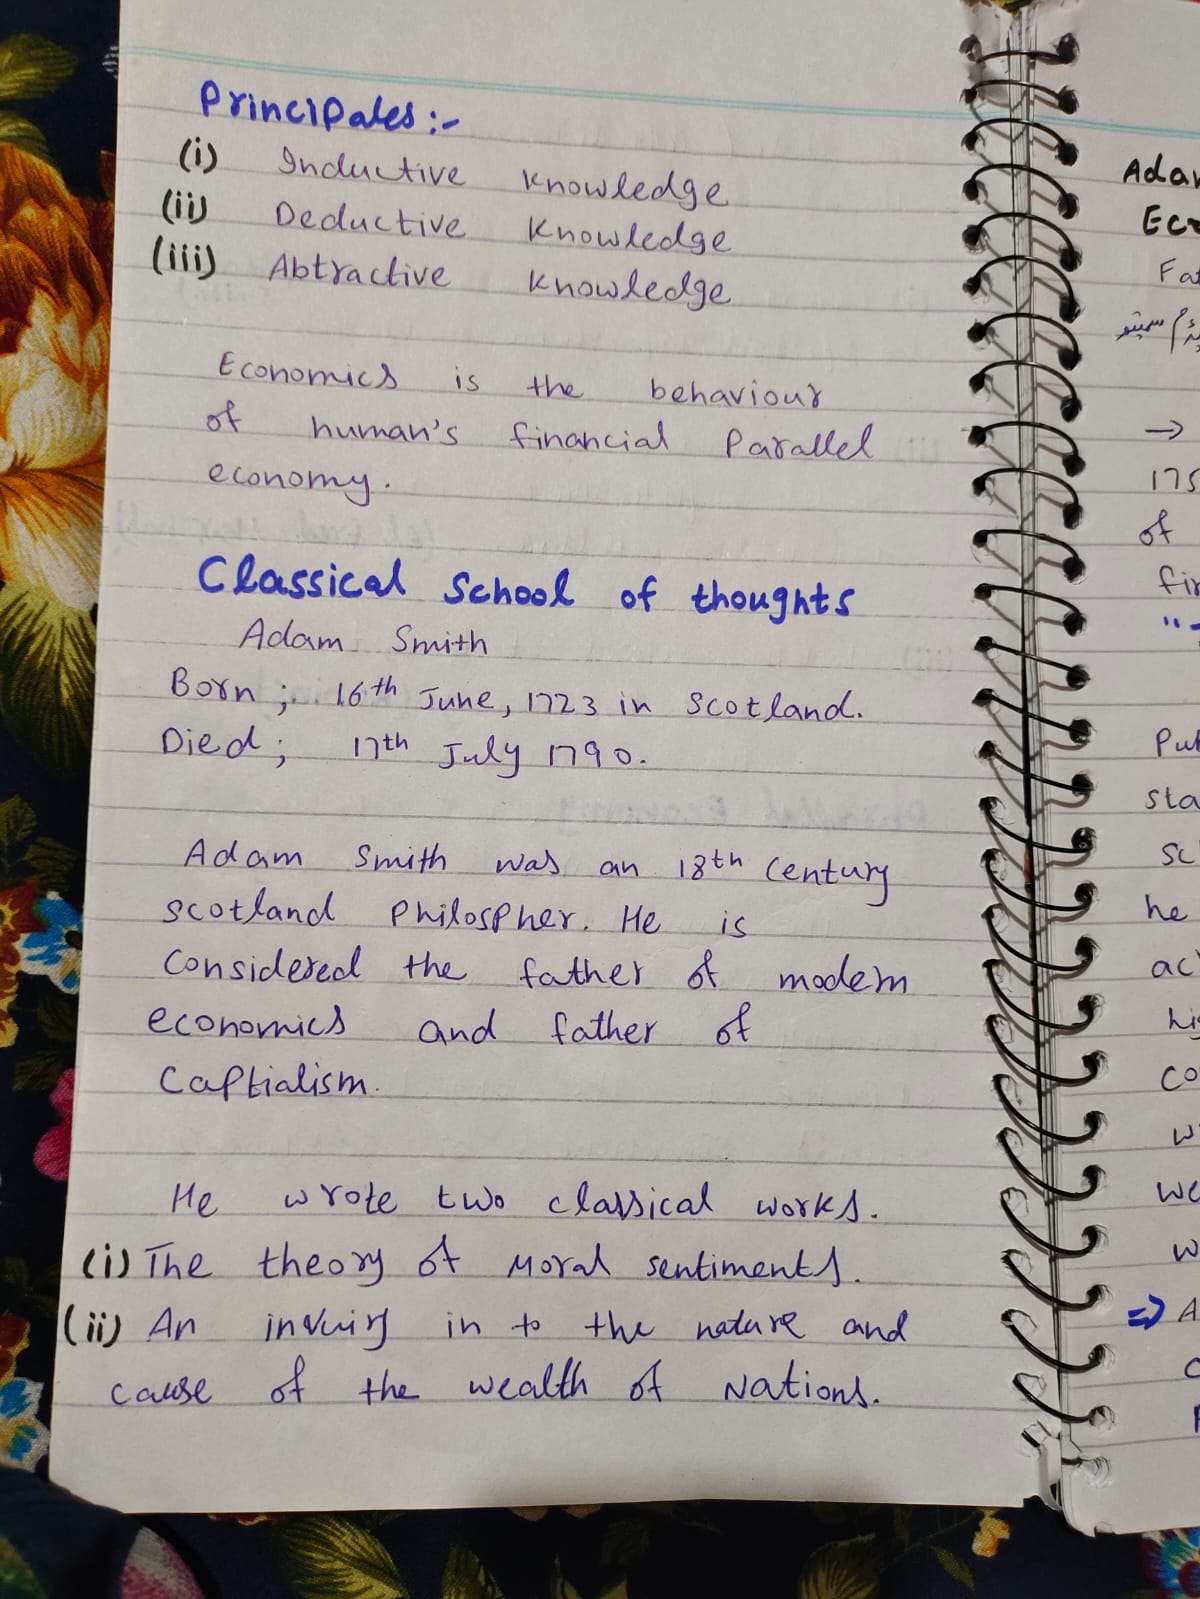 Principales :-
(i) Inductive Knowledge
(ii) Deductive Knowledge
(iii) Abtractive Knowledge
Economics is the behaviour
of human's financial Parallel
economy.
Classical School of thoughts
Adam Smith
Born ; 16th June, 1723 in Scotland.
Died ; 17th July 1790.
Adam Smith was an 18th Century
Scotland Philospher. He is
Considered the father of modern
economics and father of
Captialism.
He wrote two classical works.
(i) The theory of Moral sentiments.
(ii) An in to the nature and
cause of the wealth of Nations.
175
of
he
=> A